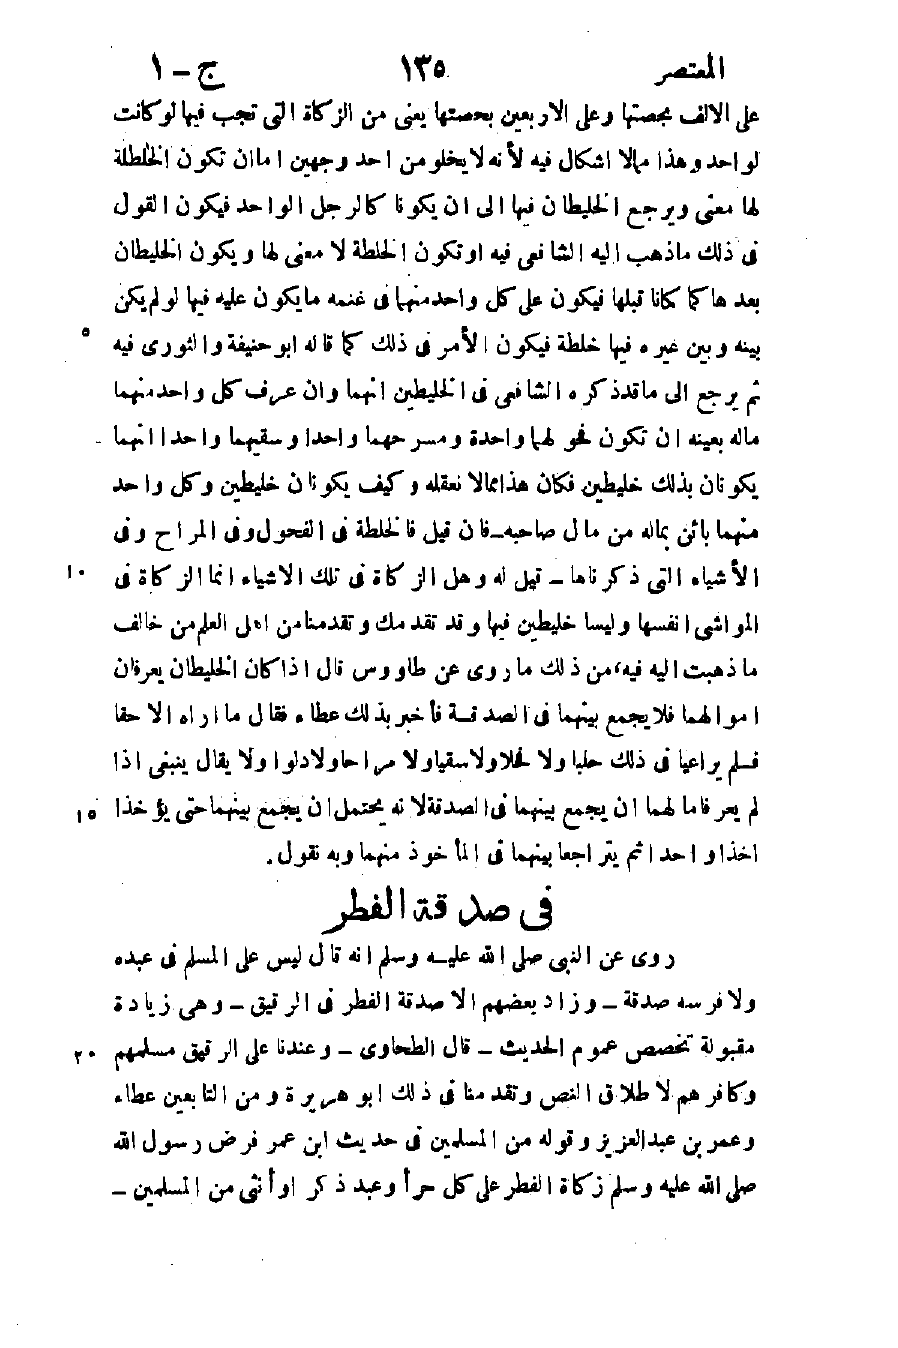 المعتصر ١٣٥ ج – ١
على الالف بحصتها وعلى الاربعين بحصتها يعنى من الزكاة التى تجب فيها لو كانت
لواحد وهذا مالا اشكال فيه لأنه لا يخلو من احد وجهين اما ان تكون الخلطلة
لها معنى ويرجع الخليطان فيها الى ان يكونا كالرجل الواحد فيكون القول
فى ذلك ماذهب اليه الشافعى فيه اوتكون الخلطة لا معنى لها ويكون الخليطان
بعدها كما كانا قبلها فيكون على كل واحدمنهما فى غنمه مايكون عليه فيها لولم يكن
بينه وبين غيره فيها خلطة فيكون الأمر فى ذلك كما قاله ابوحنيفة والثورى فيه ٥
ثم يرجع الى ماقدذكره الشافعى فى الخليطين انهما وان عرف كل واحدمنهما
ماله بعينه ان تكون فحولهما واحدة ومسرحهما واحدا وسقيهما واحدا انهما
يكونان بذلك خليطين فكان هذاممالا نعقله وكيف يكونان خليطين وكل واحد
منهما بائن بماله من مال صاحبه–فان قيل فالخلطة فى الفحول وفى المراح وفى
الأشياء التى ذكرناها – قيل له وهل الزكاة فى تلك الاشياء انما الزكاة فى ١٠
المواشى انفسها وليسا خليطين فيها وقد تقدمك وتقدمنامن اهل العلم من خالف
ماذهبت اليه فيه،من ذلك ماروى عن طاووس قال اذاكان الخليطان يعرفان
اموالهما فلا يجمع بينهما فى الصدقة فأخبر بذلك عطاء فقال ما اراه الاحقا
فلم يراعيا فى ذلك حلبا ولا فحلا ولاسقيا ولا مراحا ولادلوا ولا يقال ينبغى اذا
لم يعرفاما لهما ان يجمع بينهما فى الصدقة لانه يحتمل ان يجمع بينهما حتى يؤخذا ١٥
اخذا واحدا ثم يتراجعا بينهما فى المأخوذ منهما وبه نقول.
فى صدقة الفطر
روى عن النبى صلى الله عليه وسلم انه قال ليس على المسلم فى عبده
ولا فرسه صدقة – وزاد بعضهم الا صدقة الفطر فى الرقيق – وهى زيادة
مقبولة تخصص عموم الحديث – قال الطحاوى – وعندنا على الرقيق مسلمهم ٢٠
وكافرهم لاطلاق النص وتقدمنا فى ذلك ابوهريرة ومن التابعين عطاء
وعمر بن عبدالعزيز وقوله من المسلمين فى حديث ابن عمر فرض رسول الله
صلى الله عليه وسلم زكاة الفطر على كل حر أوعبد ذكر اوأنثى من المسلمين –